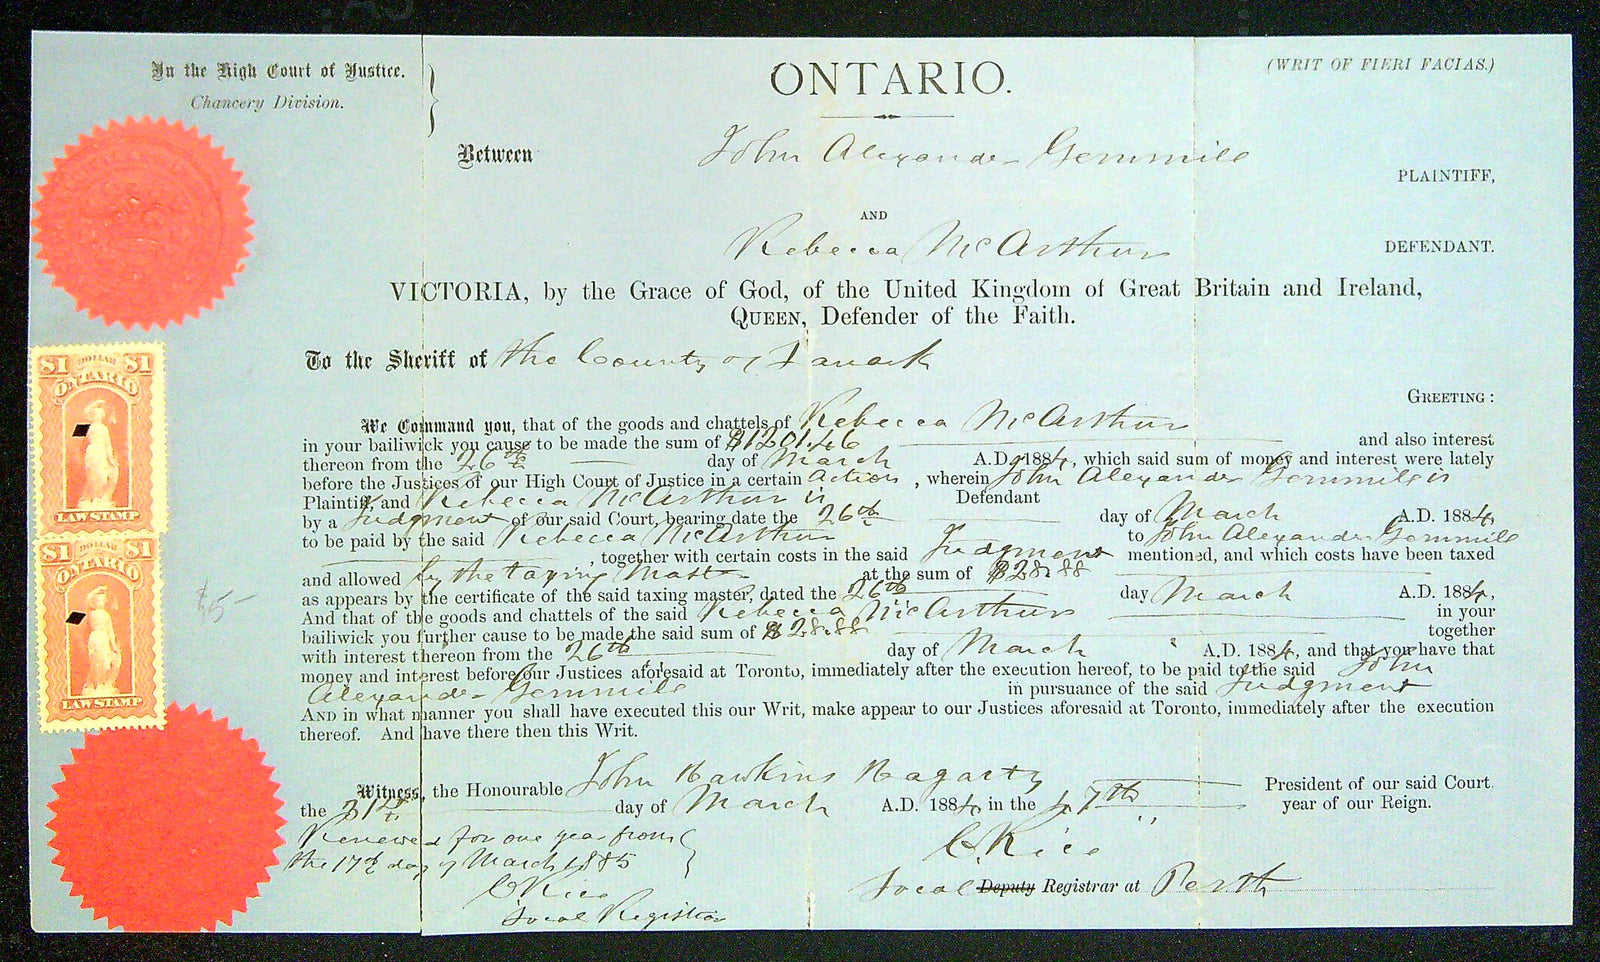 In the High Court of Justice.
Chancery Division.
ONTARIO.
(WRIT OF FIERI FACIAS.)
Between John Alexander Gemmill
PLAINTIFF,
AND
Rebecca McArthur
DEFENDANT.
VICTORIA, by the Grace of God, of the United Kingdom of Great Britain and Ireland,
QUEEN, Defender of the Faith.
To the Sheriff of the County of Lanark
GREETING:
We Command you, that of the goods and chattels of Rebecca McArthur
in your bailiwick you cause to be made the sum of $1201.46 and also interest
thereon from the 26th day of March A.D. 1884, which said sum of money and interest were lately
before the Justices of our High Court of Justice in a certain Action, wherein John Alexander Gemmill is
Plaintiff, and Rebecca McArthur is Defendant
by a Judgment of our said Court, bearing date the 26th day of March A.D. 1884,
to be paid by the said Rebecca McArthur to John Alexander Gemmill
, together with certain costs in the said Judgment mentioned, and which costs have been taxed
and allowed by the taxing Master at the sum of $28.88
as appears by the certificate of the said taxing master, dated the 26th day March A.D. 1884,
And that of the goods and chattels of the said Rebecca McArthur in your
bailiwick you further cause to be made the said sum of $28.88 together
with interest thereon from the 26th day of March A.D. 1884, and that you have that
money and interest before our Justices aforesaid at Toronto, immediately after the execution hereof, to be paid to the said John
Alexander Gemmill in pursuance of the said Judgment
AND in what manner you shall have executed this our Writ, make appear to our Justices aforesaid at Toronto, immediately after the execution
thereof. And have there then this Writ.
Witness, the Honourable John Hawkins Hagarty President of our said Court
the 31st day of March A.D. 1884 in the 47th year of our Reign.
Renewed for one year from
the 17th day of March 1885
C Rice
Local Registrar
C. Rice
Local Deputy Registrar at Perth
$1 DOLLAR $1
ONTARIO
LAW STAMP
$1 DOLLAR $1
ONTARIO
LAW STAMP
$5-